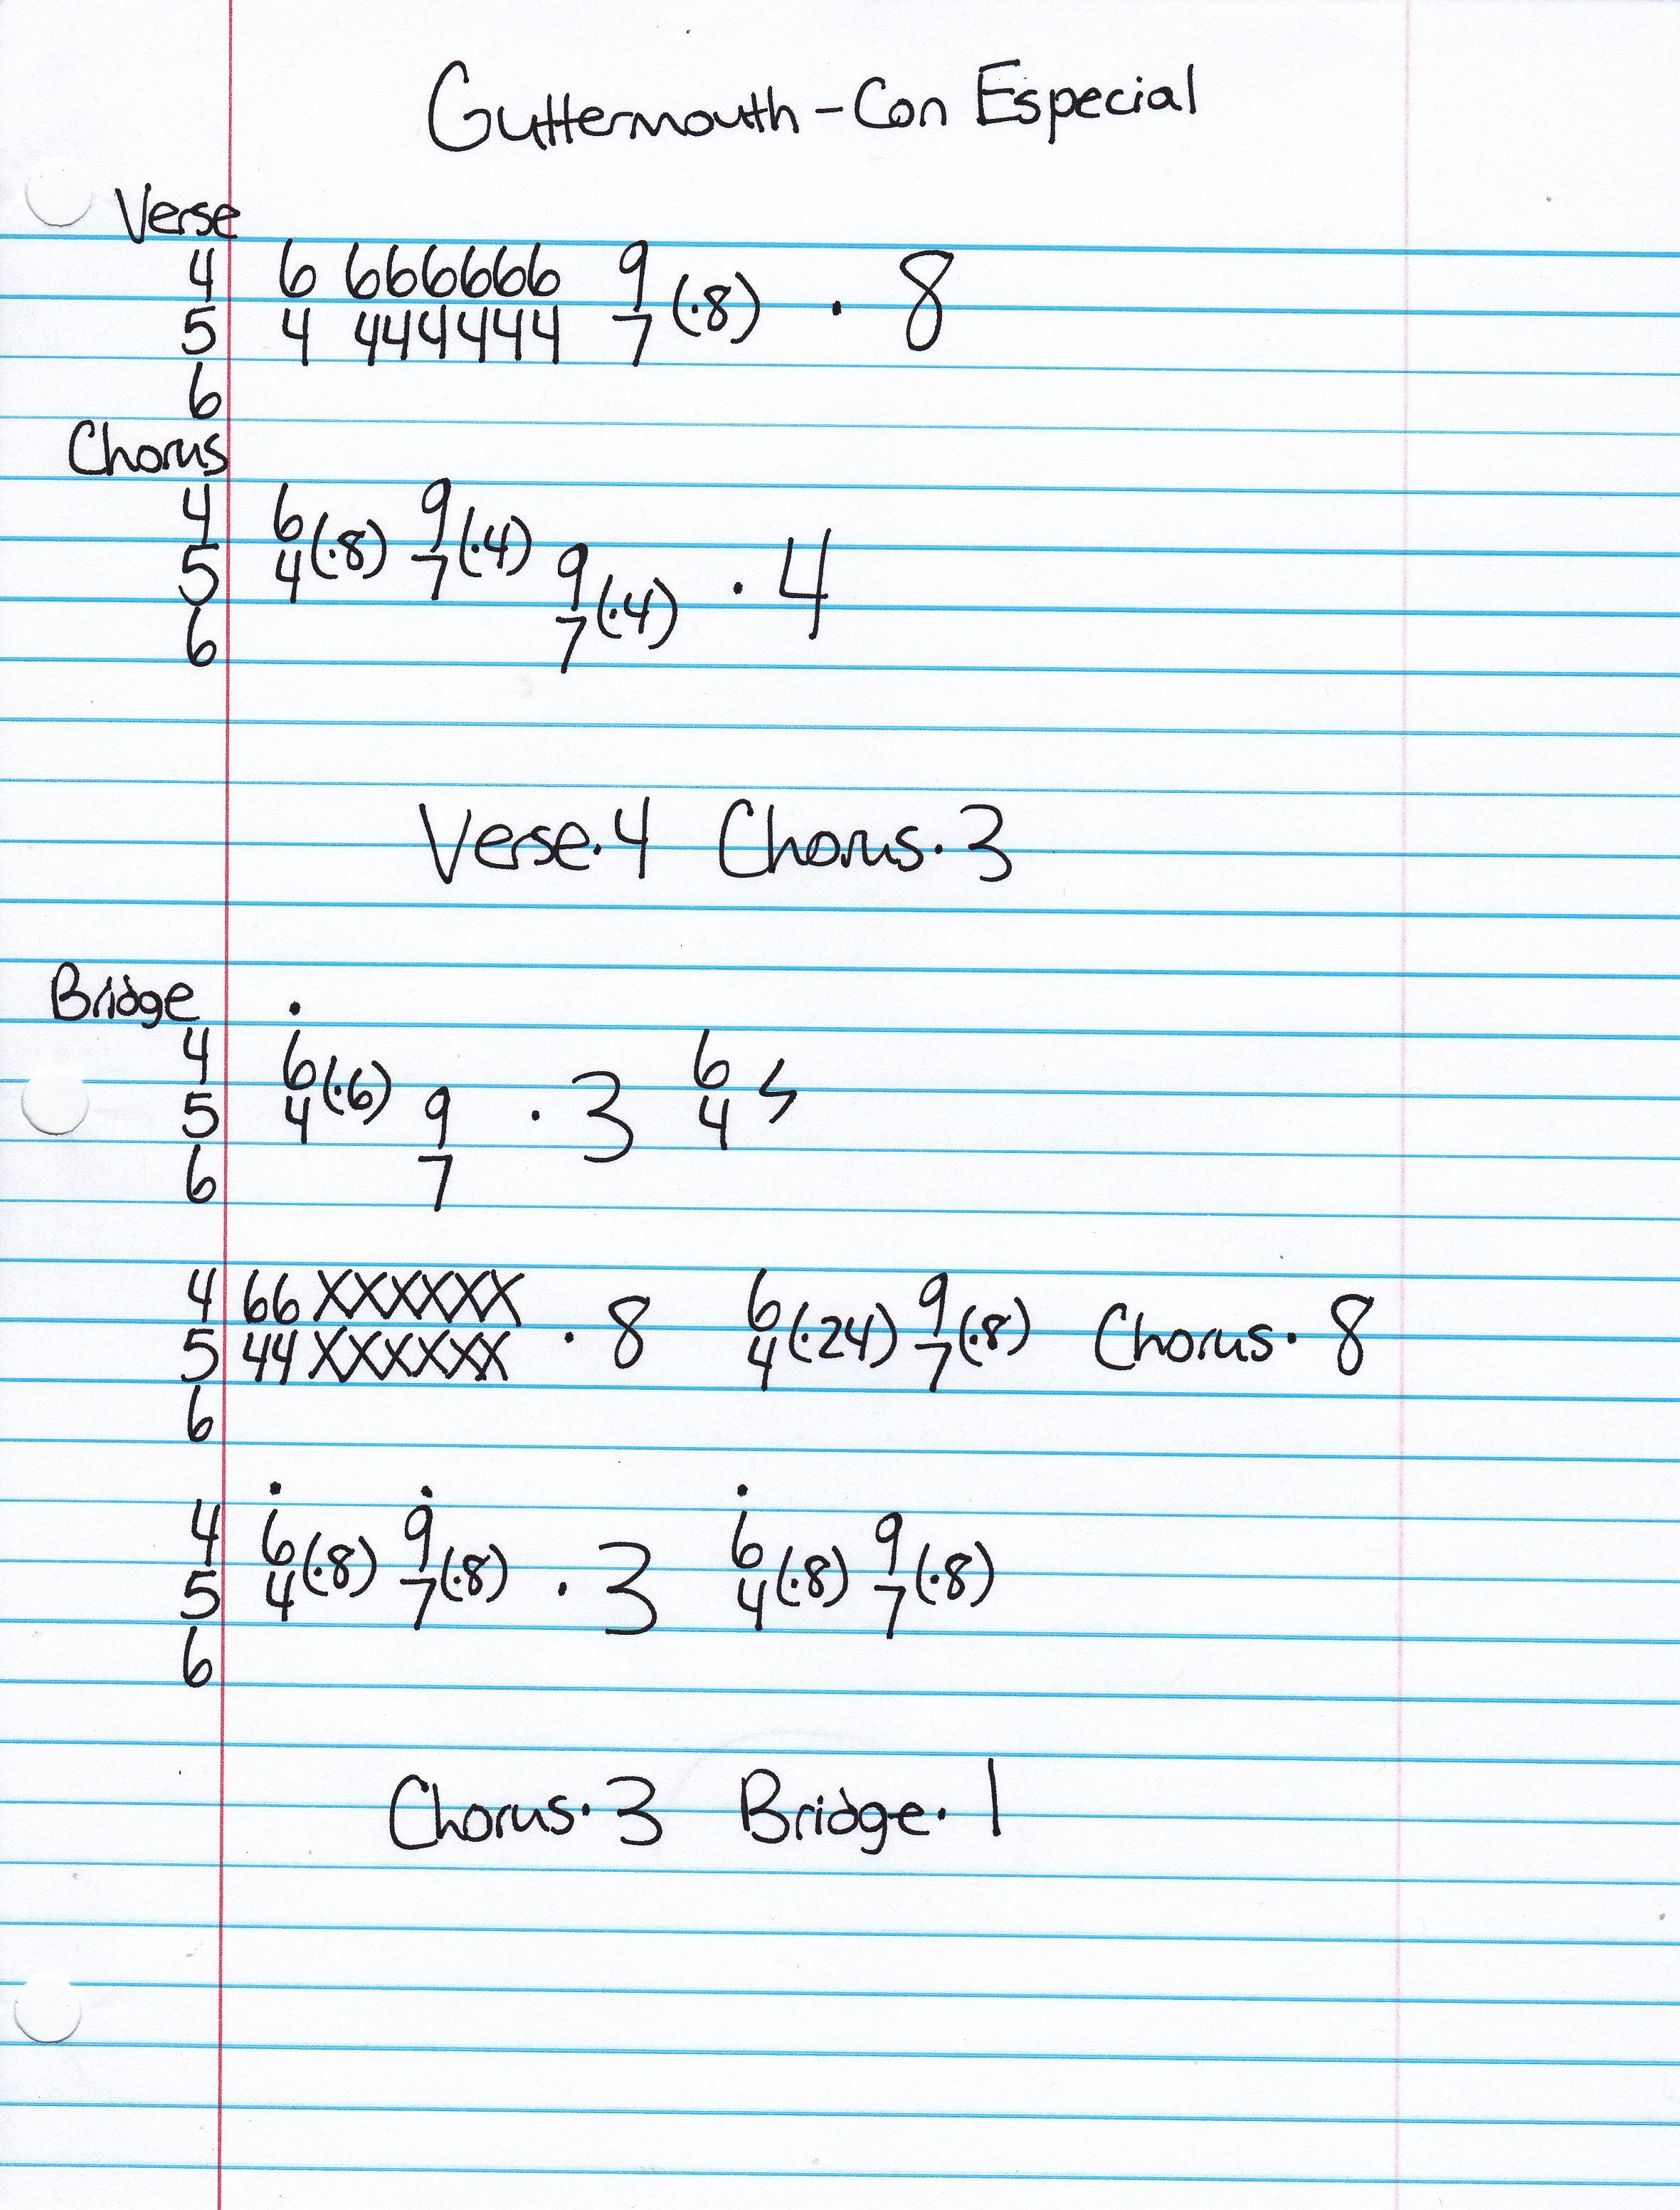 Guttermouth - Con Especial
Verse
4 6 666666 9
5 4 444444 7 (·8) · 8
6
Chorus
4 6 (·8) 9 (·4)
5 4 7 9 (·4) · 4
6 7
Verse·4 Chorus·3
Bridge
4 6 (·6) 6
5 4 9 · 3 4
6 7
4 66 XXXXXX 6 9
5 44 XXXXXX · 8 4 (·24) 7 (·8) Chorus· 8
6
4 6 9 6 9
5 4 (·8) 7 (·8) · 3 4 (·8) 7 (·8)
6
Chorus·3 Bridge·1